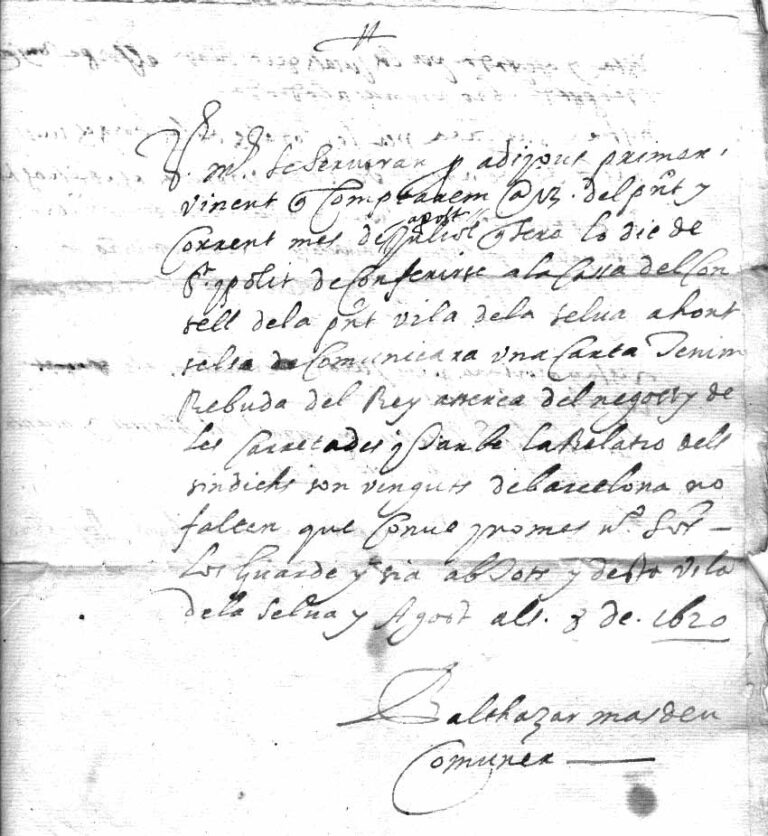 V. m. se serviran p adijous primer
vinent q Comptarem @ 13 del pnt y
Corrent mes de Juliol agost q sera lo die de
St ypolit de Conferirse a la Cassa del Con
sell dela pnt vila dela selva ahont
selsa de Comunicara vna Carta Tenim
Rebuda del Rey acerca del negossy de
Les Carretades y tambe la Relatio dels
sindichs son vinguts de barcelona no
falten que Conve y no mes
Los Guarde y sia ab Tots y desta vila
dela Selva y Agost als. 8 de. 1620
Balthazar masdeu
Comuner